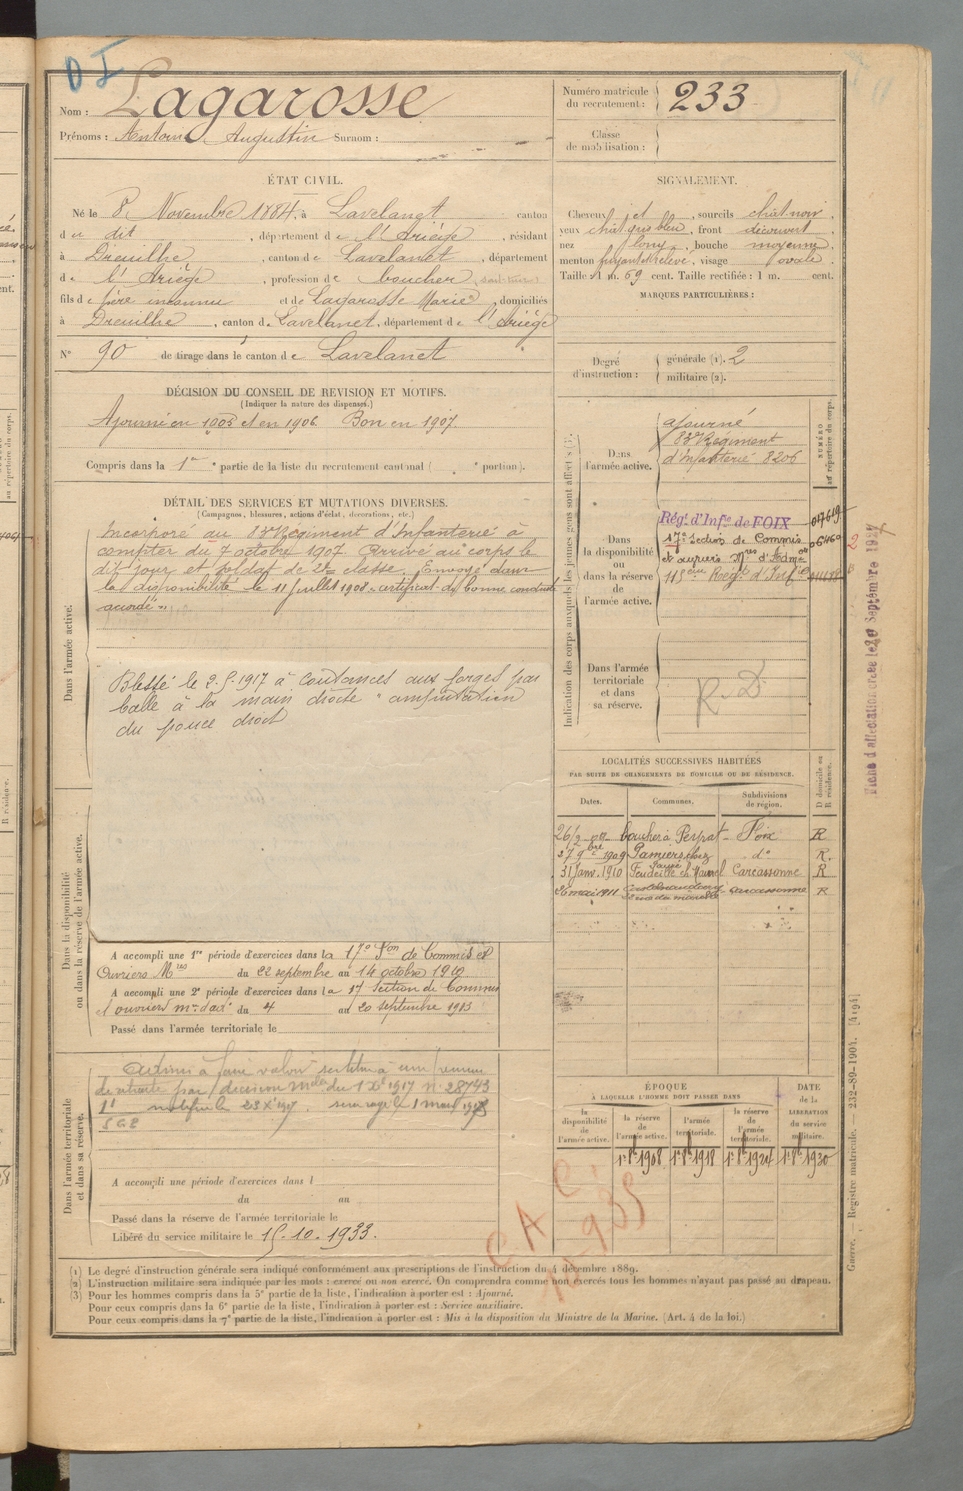 D I
Nom : Lagarosse
Prénoms : Antoine Augustin Surnom :
Numéro matricule du recrutement : 233
Classe de mobilisation :
ÉTAT CIVIL.
Né le 8 Novembre 1884, à Lavelanet canton
du dit, département de l'Ariège, résidant
à Dreuilhe, canton de Lavelanet, département
de l'Ariège, profession de boucher
fils de père inconnu et de Lagarosse Marie, domiciliés
à Dreuilhe, canton de Lavelanet, département de l'Ariège
N° 90 de tirage dans le canton de Lavelanet
SIGNALEMENT.
Cheveux et, sourcils chât noir,
yeux chât gris bleu, front découvert,
nez long, bouche moyenne,
menton fuyant relevé, visage ovale.
Taille : 1 m. 69 cent. Taille rectifiée : 1 m. cent.
MARQUES PARTICULIÈRES :
Degré d'instruction :
générale (1). 2
militaire (2).
DÉCISION DU CONSEIL DE REVISION ET MOTIFS.
(Indiquer la nature des dispenses.)
Ajourné en 1905 et en 1906. Bon en 1907.
Compris dans la 1re partie de la liste du recrutement cantonal ( e portion).
DÉTAIL DES SERVICES ET MUTATIONS DIVERSES.
(Campagnes, blessures, actions d'éclat, décorations, etc.)
Dans l'armée active.
Incorporé au 83e Régiment d'Infanterie à
compter du 7 octobre 1907. Arrivé au corps le
dit jour et soldat de 2e classe. Envoyé dans
la disponibilité le 11 Juillet 1908. certificat de bonne conduite
accordé.
Blessé le 2.5.1917 à Coutances aux forges par
balle à la main droite amputation
du pouce droit
Dans la disponibilité ou dans la réserve de l'armée active.
A accompli une 1re période d'exercices dans la 17e Son de Commis et
Ouvriers Mres du 22 septembre au 14 octobre 1910
A accompli une 2e période d'exercices dans la 17 Section de Commis
et ouvriers du 4 au 20 septembre 1913
Passé dans l'armée territoriale le
Dans l'armée territoriale et dans sa réserve.
Admis à faire valoir ses titres à une
de retraite par décision Melle du 1 Xe 1917 n° 28743
notifiée le 23 Xe 1917.
A accompli une période d'exercices dans l
du au
Passé dans la réserve de l'armée territoriale le
Libéré du service militaire le 15.10.1933.
Indication des corps auxquels les jeunes gens sont affectés (3).
NUMÉRO au répertoire du corps.
Dans l'armée active.
ajourné
83e Régiment
d'Infanterie 8206
Dans la disponibilité ou dans la réserve de l'armée active.
Régt d'Infie de FOIX 017619
17e Section de Commis 06460
et ouvriers Mres d'Adm on
Dans l'armée territoriale et dans sa réserve.
R.D
LOCALITÉS SUCCESSIVES HABITÉES
PAR SUITE DE CHANGEMENTS DE DOMICILE OU DE RÉSIDENCE.
Dates. Communes. Subdivisions de région. D domicile ou R résidence.
boucher à Peyrat Foix R
1909 Pamiers do R.
31 Janv. 1910 Carcassonne R
26 mai 1911 Castelnaudary Carcassonne R
ÉPOQUE
À LAQUELLE L'HOMME DOIT PASSER DANS
la disponibilité de l'armée active.
la réserve de l'armée active.
l'armée territoriale.
la réserve de l'armée territoriale.
DATE de la LIBÉRATION du service militaire.
1er 8bre 1908 1er 8bre 1918 1er 8bre 1924 1er 8bre 1930
(1) Le degré d'instruction générale sera indiqué conformément aux prescriptions de l'instruction du 4 décembre 1889.
(2) L'instruction militaire sera indiquée par les mots : exercé ou non exercé. On comprendra comme non exercés tous les hommes n'ayant pas passé au drapeau.
(3) Pour les hommes compris dans la 5e partie de la liste, l'indication à porter est : Ajourné.
Pour ceux compris dans la 6e partie de la liste, l'indication à porter est : Service auxiliaire.
Pour ceux compris dans la 7e partie de la liste, l'indication à porter est : Mis à la disposition du Ministre de la Marine. (Art. 4 de la loi.)
Fiche d'affectation créée le 20 Septembre 1927
Guerre. — Registre matricule. — 232-89-1904. [4194]